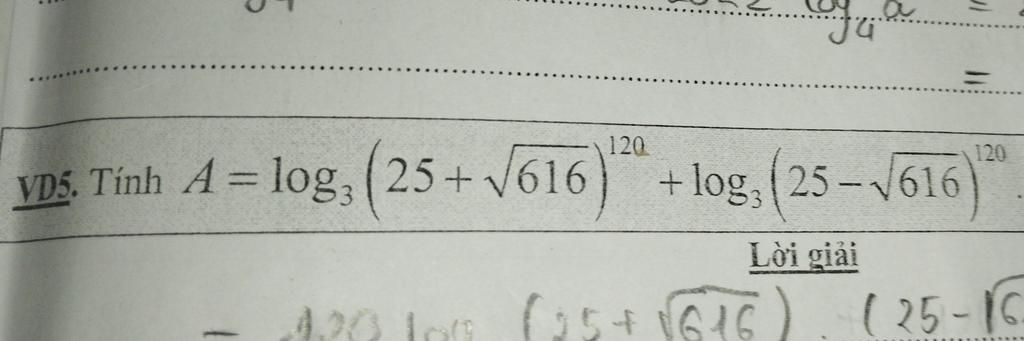 log₄ a =
=
VD5. Tính A = log₃ (25 + √616)¹²⁰ + log₃ (25 − √616)¹²⁰ .
Lời giải
= 120 log (25 + √616) . (25 − √6